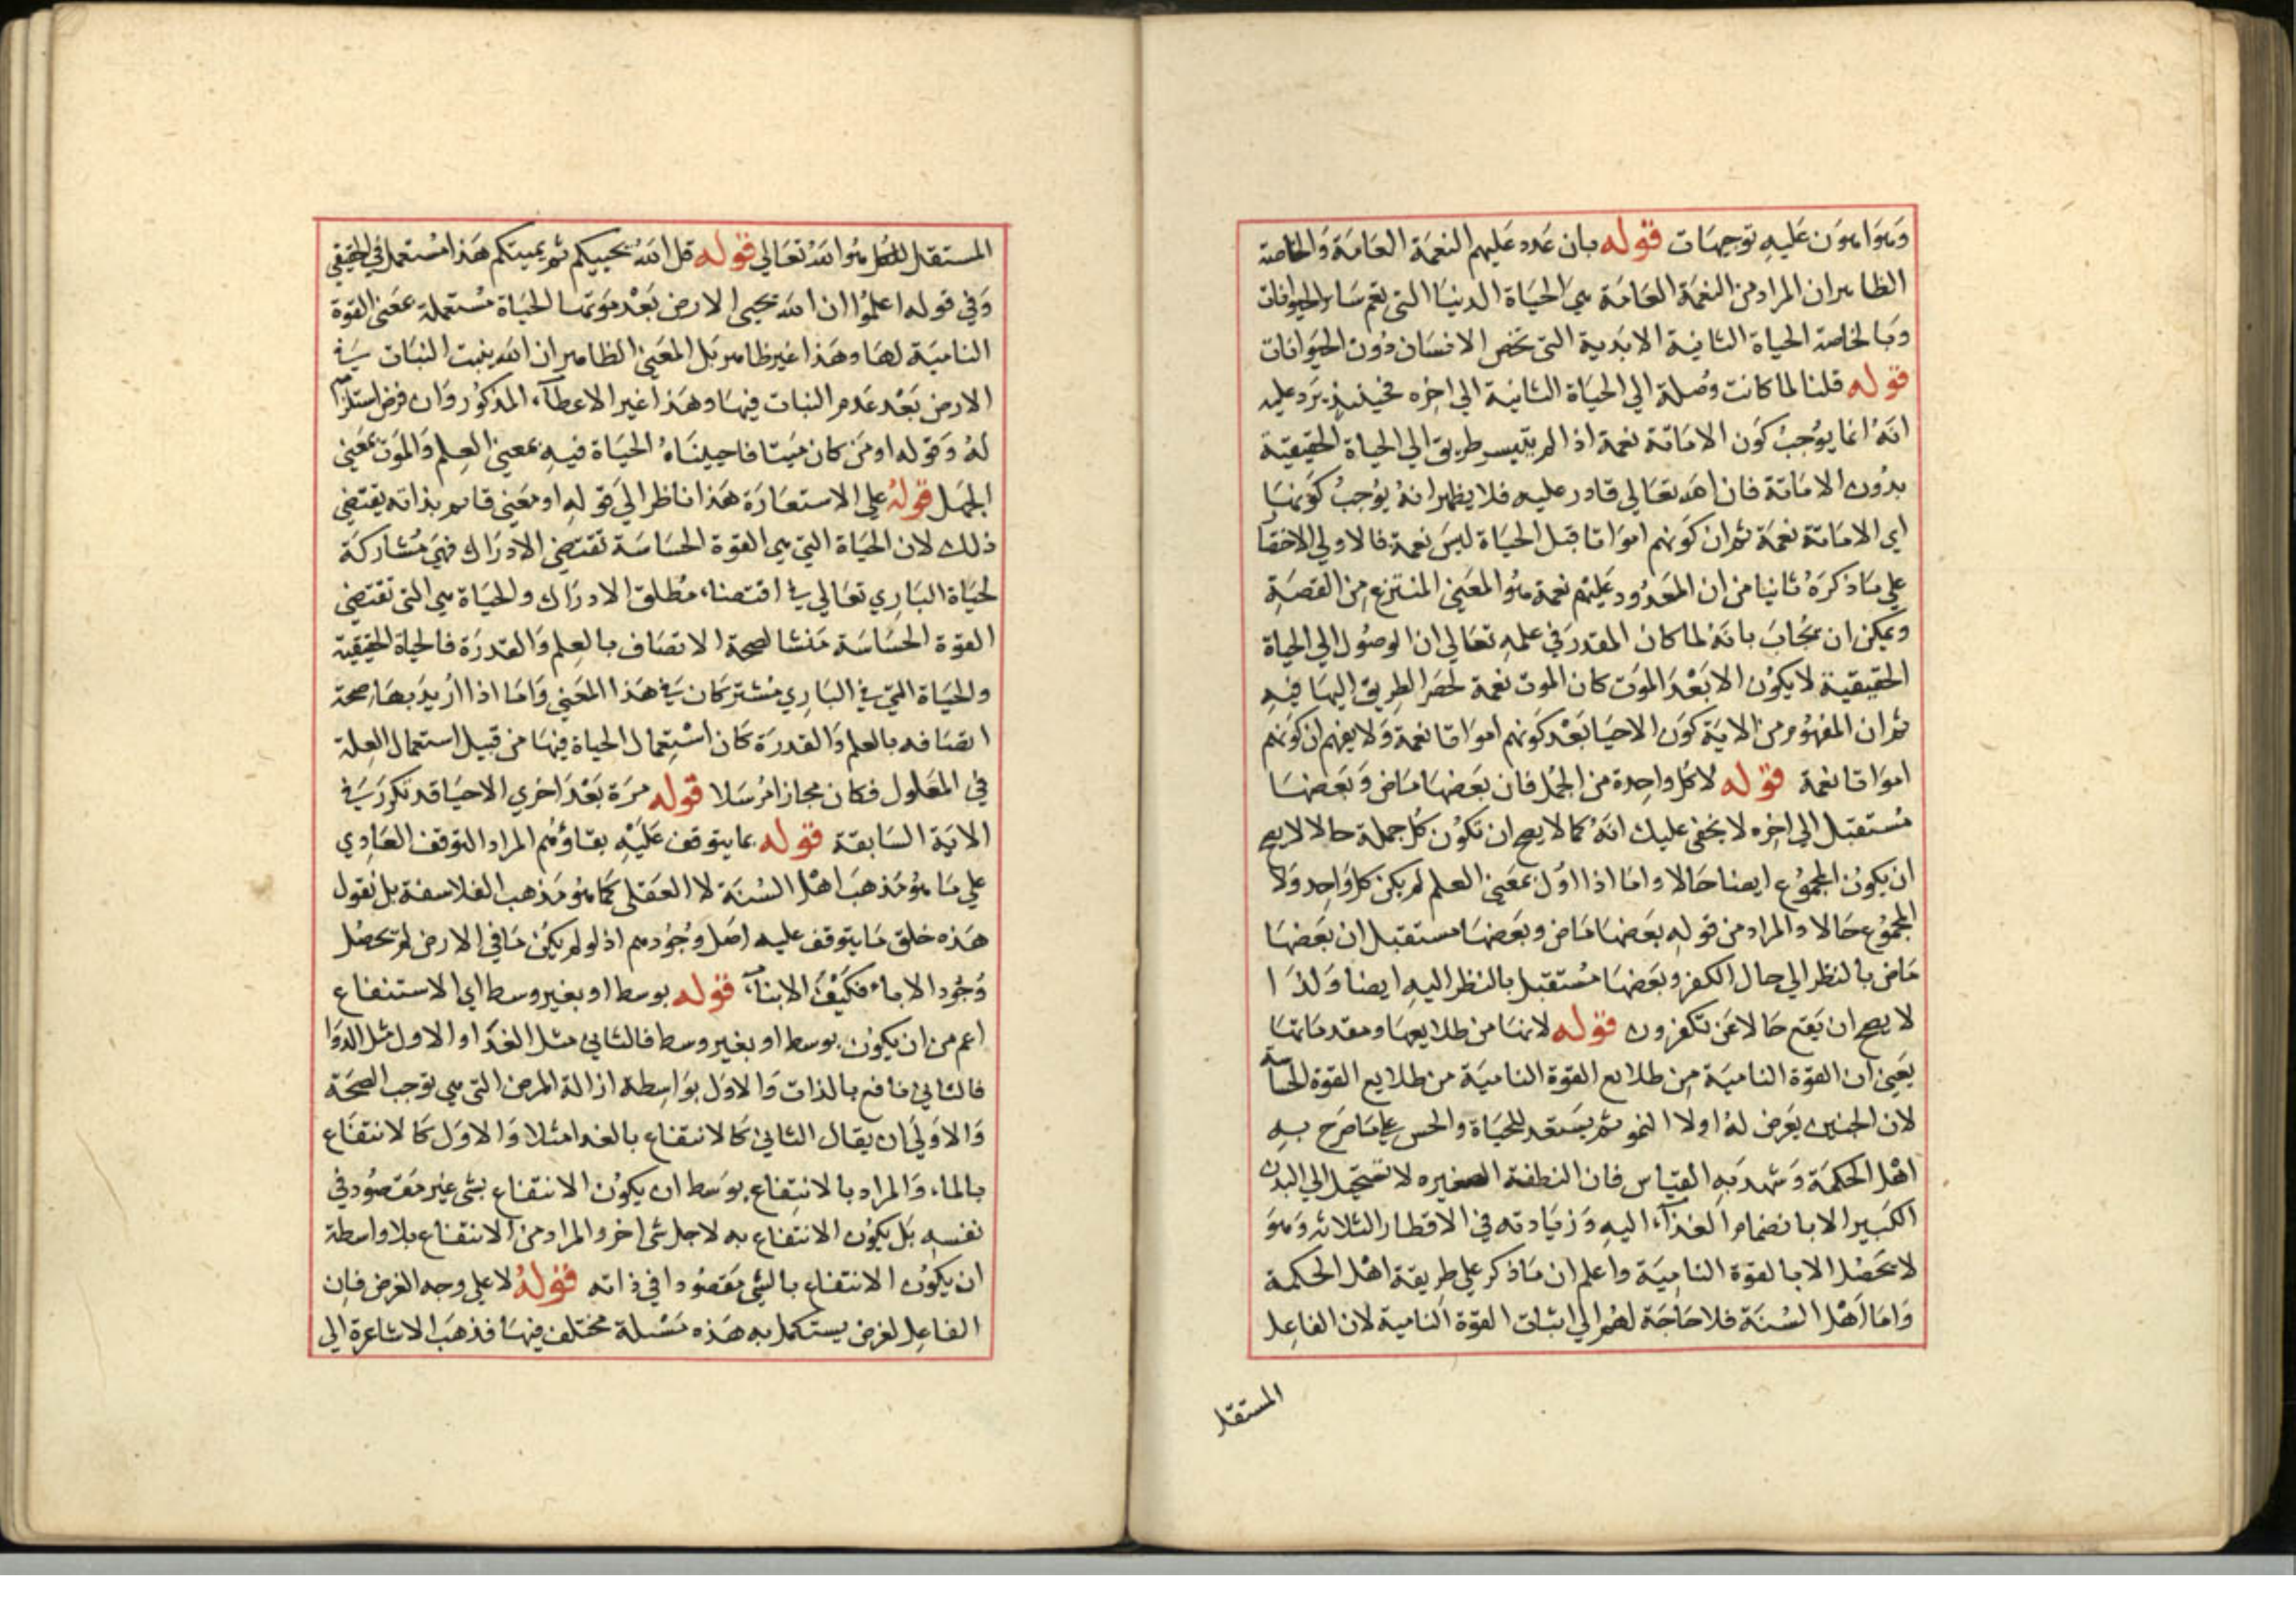 وهو اهون عليه توجيهات قوله بان عدد عليهم النعمة العامة والخاصة
الظاهر ان المراد من النعمة العامة هي الحياة الدنيا التي تعم سائر الحيوانات
وبالخاصة الحياة الثانية الابدية التي تخص الانسان دون الحيوانات
قوله قلنا لما كانت وصلة الي الحياة الثانية الي اخره فحينئذ يرد عليه
انه انما يوجب كون الاماتة نعمة اذا لم يتيسر طريق الي الحياة الحقيقية
بدون الاماتة فان الله تعالي قادر عليه فلا يظهر انه يوجب كونها
اي الاماتة نعمة ثم ان كونهم امواتا قبل الحياة ليس نعمة فالاولي الاختصا
علي ما ذكره ثانيا من ان المعدود عليهم نعمة هو المعني المنتزع من القصة
ويمكن ان يجاب بانه لما كان المقدر في علمه تعالي ان الوصول الي الحياة
الحقيقية لا يكون الا بعد الموت كان الموت نعمة لحصر الطريق اليها فيه
ثم ان المفهوم من الاية كون الاحيا بعد كونهم امواتا نعمة ولا يفهم ان كونهم
امواتا نعمة قوله لا كل واحدة من الجمل فان بعضها ماض وبعضها
مستقبل الي اخره لا يخفي عليك انه كما لا يصح ان تكون كل جملة حالا لا يصح
ان يكون المجموع ايضا حالا واما اذا اول بمعني العلم لم يكن كل واحد ولا
المجموع حالا والمراد من قوله بعضها ماض وبعضها مستقبل ان بعضها
ماض بالنظر الي حال الكفر وبعضها مستقبل بالنظر اليه ايضا ولذا
لا يصح ان يقع حالا عن تكفرون قوله لانها من طلايعها ومقدماتها
يعني ان القوة النامية من طلايع القوة النامية من طلايع القوة الحاسة
لان الجنين يعرض له اولا النمو ثم يستعد للحياة والحس علي ما صرح به
اهل الحكمة وشهد به القياس فان النطفة الصغيره لا تستحيل الي البدن
الكبير الا بانضمام الغذاء اليه وزيادته في الاقطار الثلاثه وهو
لا يحصل الا بالقوة النامية واعلم ان ما ذكر علي طريقة اهل الحكمة
واما اهل السنة فلا حاجة لهم الي اثبات القوة النامية لان الفاعل
المستقل
المستقل للكل هو الله تعالي قوله قل الله يحييكم ثم يميتكم هذا مستعمل في الحقيقي
وفي قوله اعلموا ان الله يحيي الارض بعد موتها الحياة مستعملة بمعني القوة
النامية لها وهذا غير ظاهر بل المعني الظاهر ان الله ينبت النبات في
الارض بعد عدم النبات فيها وهذا غير الاعطاء المذكور وان فرض استلزامه
له وقوله او من كان ميتا فاحييناه الحياة فيه بمعني العلم والموت بمعني
الجهل قوله علي الاستعارة هذا ناظر الي قوله او معني قايم بذاته يقتضي
ذلك لان الحياة التي هي القوة الحساسة تقتضي الادراك فهي مشاركة
لحياة الباري تعالي في اقتضاء مطلق الادراك والحياة هي التي تقتضي
القوة الحساسة منشا لصحة الاتصاف بالعلم والقدرة فالحياة الحقيقية
والحياة التي في الباري مشتركان في هذا المعني واما اذا اريد بها صحة
اتصافه بالعلم والقدرة كان استعمال الحياة فيها من قبيل استعمال العلة
في المعلول فكان مجازا مرسلا قوله مرة بعد اخري الاحيا قد تكرر في
الاية السابقة قوله بما يتوقف عليه بقاؤهم المراد التوقف العادي
علي ما هو مذهب اهل السنة لا العقلي كما هو مذهب الفلاسفة بل نقول
هذه خلق ما يتوقف عليه اصل وجودهم اذ لو لم يكن ما في الارض لم تحصل
وجود الاباء فكيف الابناء قوله بوسط او بغير وسط اي الاستنفاع
اعم من ان يكون بوسط او بغير وسط فالثاني مثل الغذا والاول مثل الدوا
فالثاني نافع بالذات والاول بواسطة ازالة المرض التي هي توجب الصحة
والاولي ان يقال الثاني كالانتفاع بالغدا مثلا والاول كالانتفاع
بالماء والمراد بالانتفاع بوسط ان يكون الانتفاع بشي غير مقصود في
نفسه بل يكون الانتفاع به لاجل شي اخر والمراد من الانتفاع بلا واسطة
ان يكون الانتفاع بالشي مقصودا في ذاته قوله لا علي وجه الغرض فان
الفاعل لغرض يستكمل به هذه مسئلة مختلف فيها فذهب الاشاعرة الي